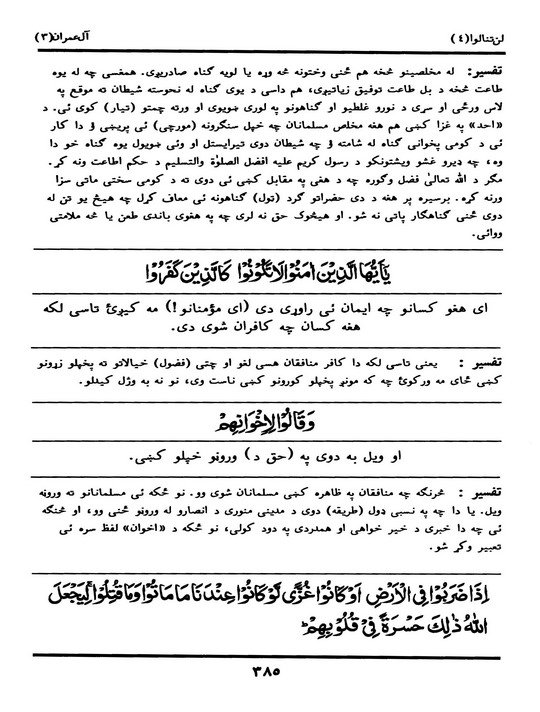 لن تنالوا(٤) آل عمران(٣)
تفسیر: له مخلصینو څخه هم ځنی وختونه څه وړه یا لویه ګناه صادریږی. همغسی چه له یوه
طاعت څخه د بل طاعت توفیق زیاتیږی، هم داسی د یوی ګناه له نحوسته شیطان ته موقع په
لاس ورځی او سړی د نورو غلطیو او ګناهونو په لوری ښویوی او ورته چمتو (تیار) کوی ئی. د
«احد» په غزا کښی هم هغه مخلص مسلمانان چه خپل سنګرونه (مورچی) ئی پریښی ؤ دا کار
ئی د کومی پخوانی ګناه له شامته ؤ چه شیطان دوی تیرایستل او وئی ښویول یوه ګناه خو دا
وه، چه ډیرو غشو ویشتونکو د رسول کریم علیه افضل الصلوٰة والتسلیم د حکم اطاعت ونه کړ.
مګر د الله تعالیٰ فضل وګوره چه د هغی په مقابل کښی ئی دوی ته د کومی سختی ماتی سزا
ورنه کړه. برسیره پر هغه د دی حضراتو ګرد (ټول) ګناهونه ئی معاف کړل چه هیڅ یو تن له
دوی ځنی ګناهګار پاتی نه شو. او هیڅوک حق نه لری چه په هغوی باندی طعن یا څه ملامتی
ووائی.
يٰٓاَيُّهَا الَّذِيْنَ اٰمَنُوْا لَا تَكُوْنُوْا كَالَّذِيْنَ كَفَرُوْا
ای هغو کسانو چه ایمان ئی راوړی دی (ای مؤمنانو!) مه کیږئ تاسی لکه
هغه کسان چه کافران شوی دی.
تفسیر: یعنی تاسی لکه دا کافر منافقان هسی لغو او چتی (فضول) خیالاتو ته پخپلو زړونو
کښی ځای مه ورکوئ چه که مونږ پخپلو کورونو کښی ناست وی، نو نه به وژل کیدلو.
وَقَالُوْا لِاِخْوَانِهِمْ
او ویل به دوی په (حق د) وروڼو خپلو کښی.
تفسیر: څرنګه چه منافقان په ظاهره کښی مسلمانان شوی وو. نو ځکه ئی مسلمانانو ته وروڼه
ویل. یا دا چه په نسبی ډول (طریقه) دوی د مدینی منوری د انصارو له وروڼو ځنی وو، او څنګه
ئی چه دا خبری د خیر خواهی او همدردی په دود کولی، نو ځکه د «اخوان» لفظ سره ئی
تعبیر وکړ شو.
اِذَا ضَرَبُوْا فِي الْاَرْضِ اَوْ كَانُوْا غُزًّى لَّوْ كَانُوْا عِنْدَنَا مَا مَاتُوْا وَمَا قُتِلُوْا لِيَجْعَلَ
اللّٰهُ ذٰلِكَ حَسْرَةً فِيْ قُلُوْبِهِمْ ط
٣٨٥